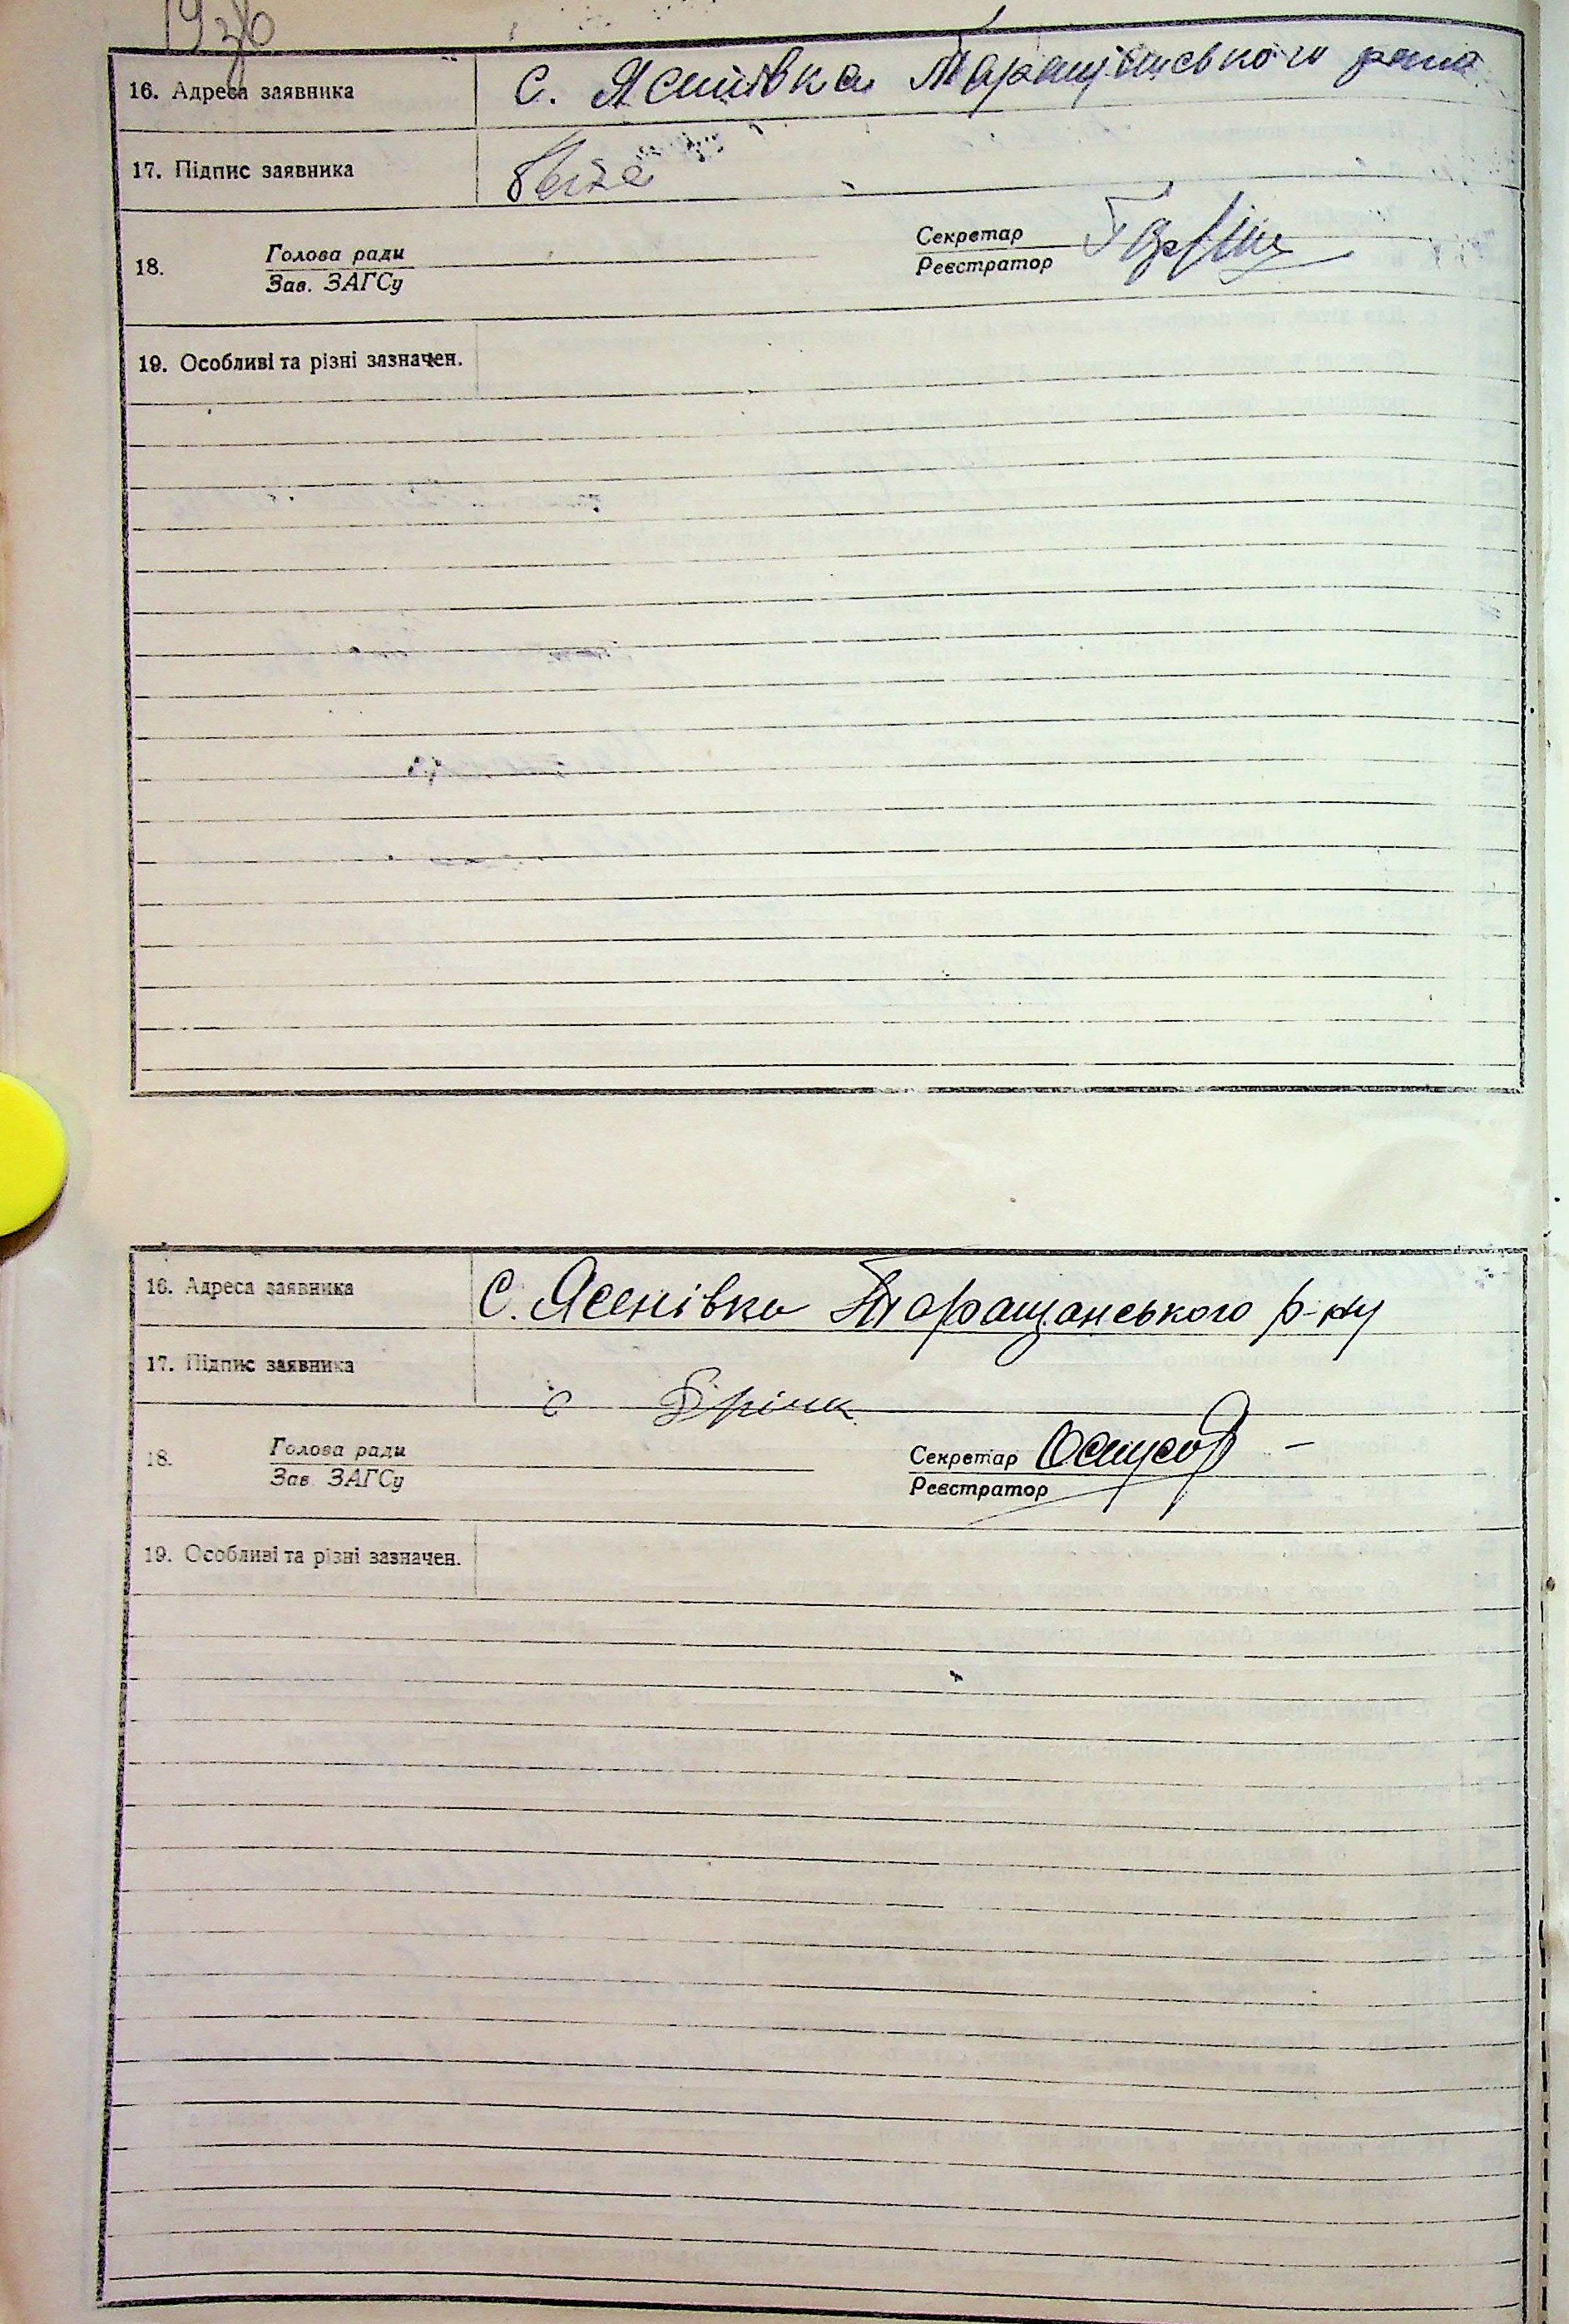 16. Адреса заявника С. Яснівка Таращанського рана
17. Підпис заявника
18. Голова ради Секретар
Зав. ЗАГСу Реєстратор
19. Особливі та різні зазначен.
16. Адреса заявника С. Ясенівка Таращанського р-ну
17. Підпис заявника
18. Голова ради Секретар
Зав. ЗАГСу Реєстратор
19. Особливі та різні зазначен.